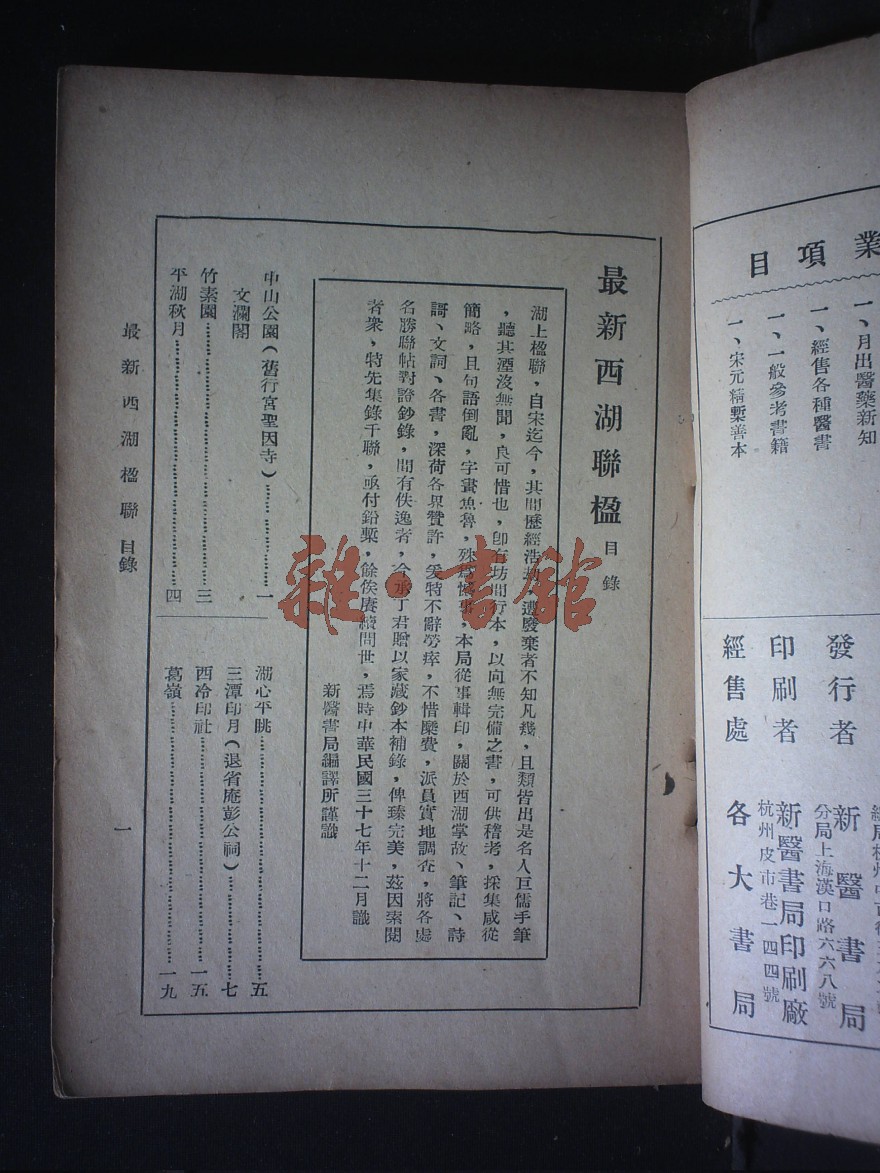 業項目
一、月出醫藥新知
一、經售各種醫書
一、一般參考書籍
一、宋元精槧善本
發行者 新醫書局
分局上海漢口路六六八號
印刷者 新醫書局印刷廠
杭州皮市巷一四四號
經售處 各大書局
最新西湖聯楹目錄
湖上楹聯，自宋迄今，其間歷經浩劫，遭廢棄者不知凡幾，且類皆出是名人巨儒手筆
，聽其湮沒無聞，良可惜也，卽有坊間行本，以向無完備之書，可供稽考，採集咸從
簡略，且句語倒亂，字畫魚魯，殊爲憾事，本局從事輯印，關於西湖掌故、筆記、詩
謌、文詞、各書，深荷各界贊許，爰特不辭勞瘁，不惜麋費，派員實地調查，將各處
名勝聯帖對證鈔錄，間有佚逸者，今承丁君贈以家藏鈔本補錄，俾臻完美，茲因索閱
者衆，特先集錄千聯，亟付鉛槧，餘俟賡續問世，焉時中華民國三十七年十二月識
新醫書局編譯所謹識
中山公園（舊行宮聖因寺）…………一
文瀾閣
竹素園…………三
平湖秋月…………四
湖心平眺…………五
三潭印月（退省庵彭公祠）…………七
西冷印社…………一五
葛嶺…………一九
最新西湖楹聯目錄
一
雜·書館